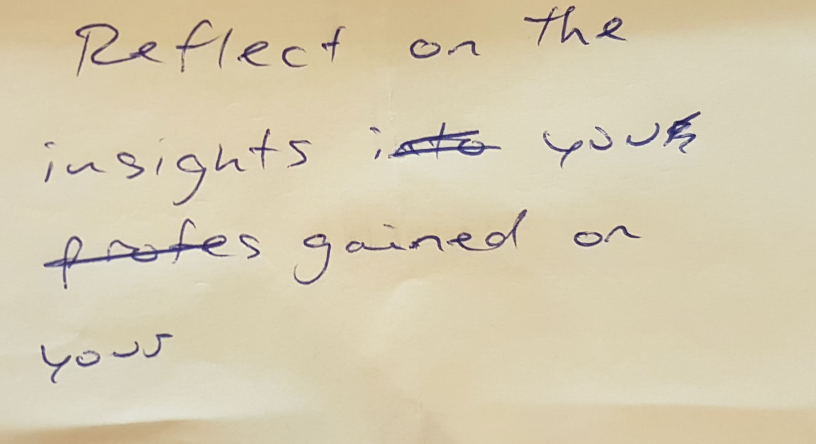 Reflect on the
insights into you
profes gained on
your